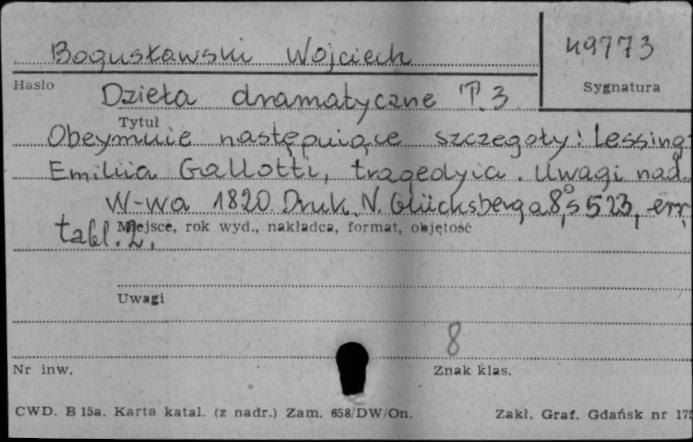 Bogusławski Wojciech
49773
Hasło
Sygnatura
Dzieła dramatyczne T. 3
Tytuł
Obeymuie następuiące szczegoły: Lessing
Emiliia Gallotti, tragedyia. Uwagi nad.
W-wa 1820 Druk. N. Glücksberga 8° s 523, err.
tabl. 2.
Miejsce, rok wyd., nakładca, format, objętość
Uwagi
8
Nr inw.
Znak klas.
CWD. B 15a. Karta katal. (z nadr.) Zam. 658/DW/On.
Zakł. Graf. Gdańsk nr 175